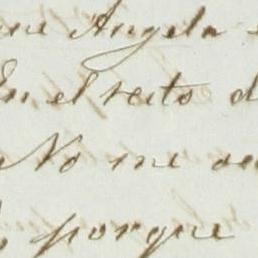 Angela
En el resto d
No me
porque